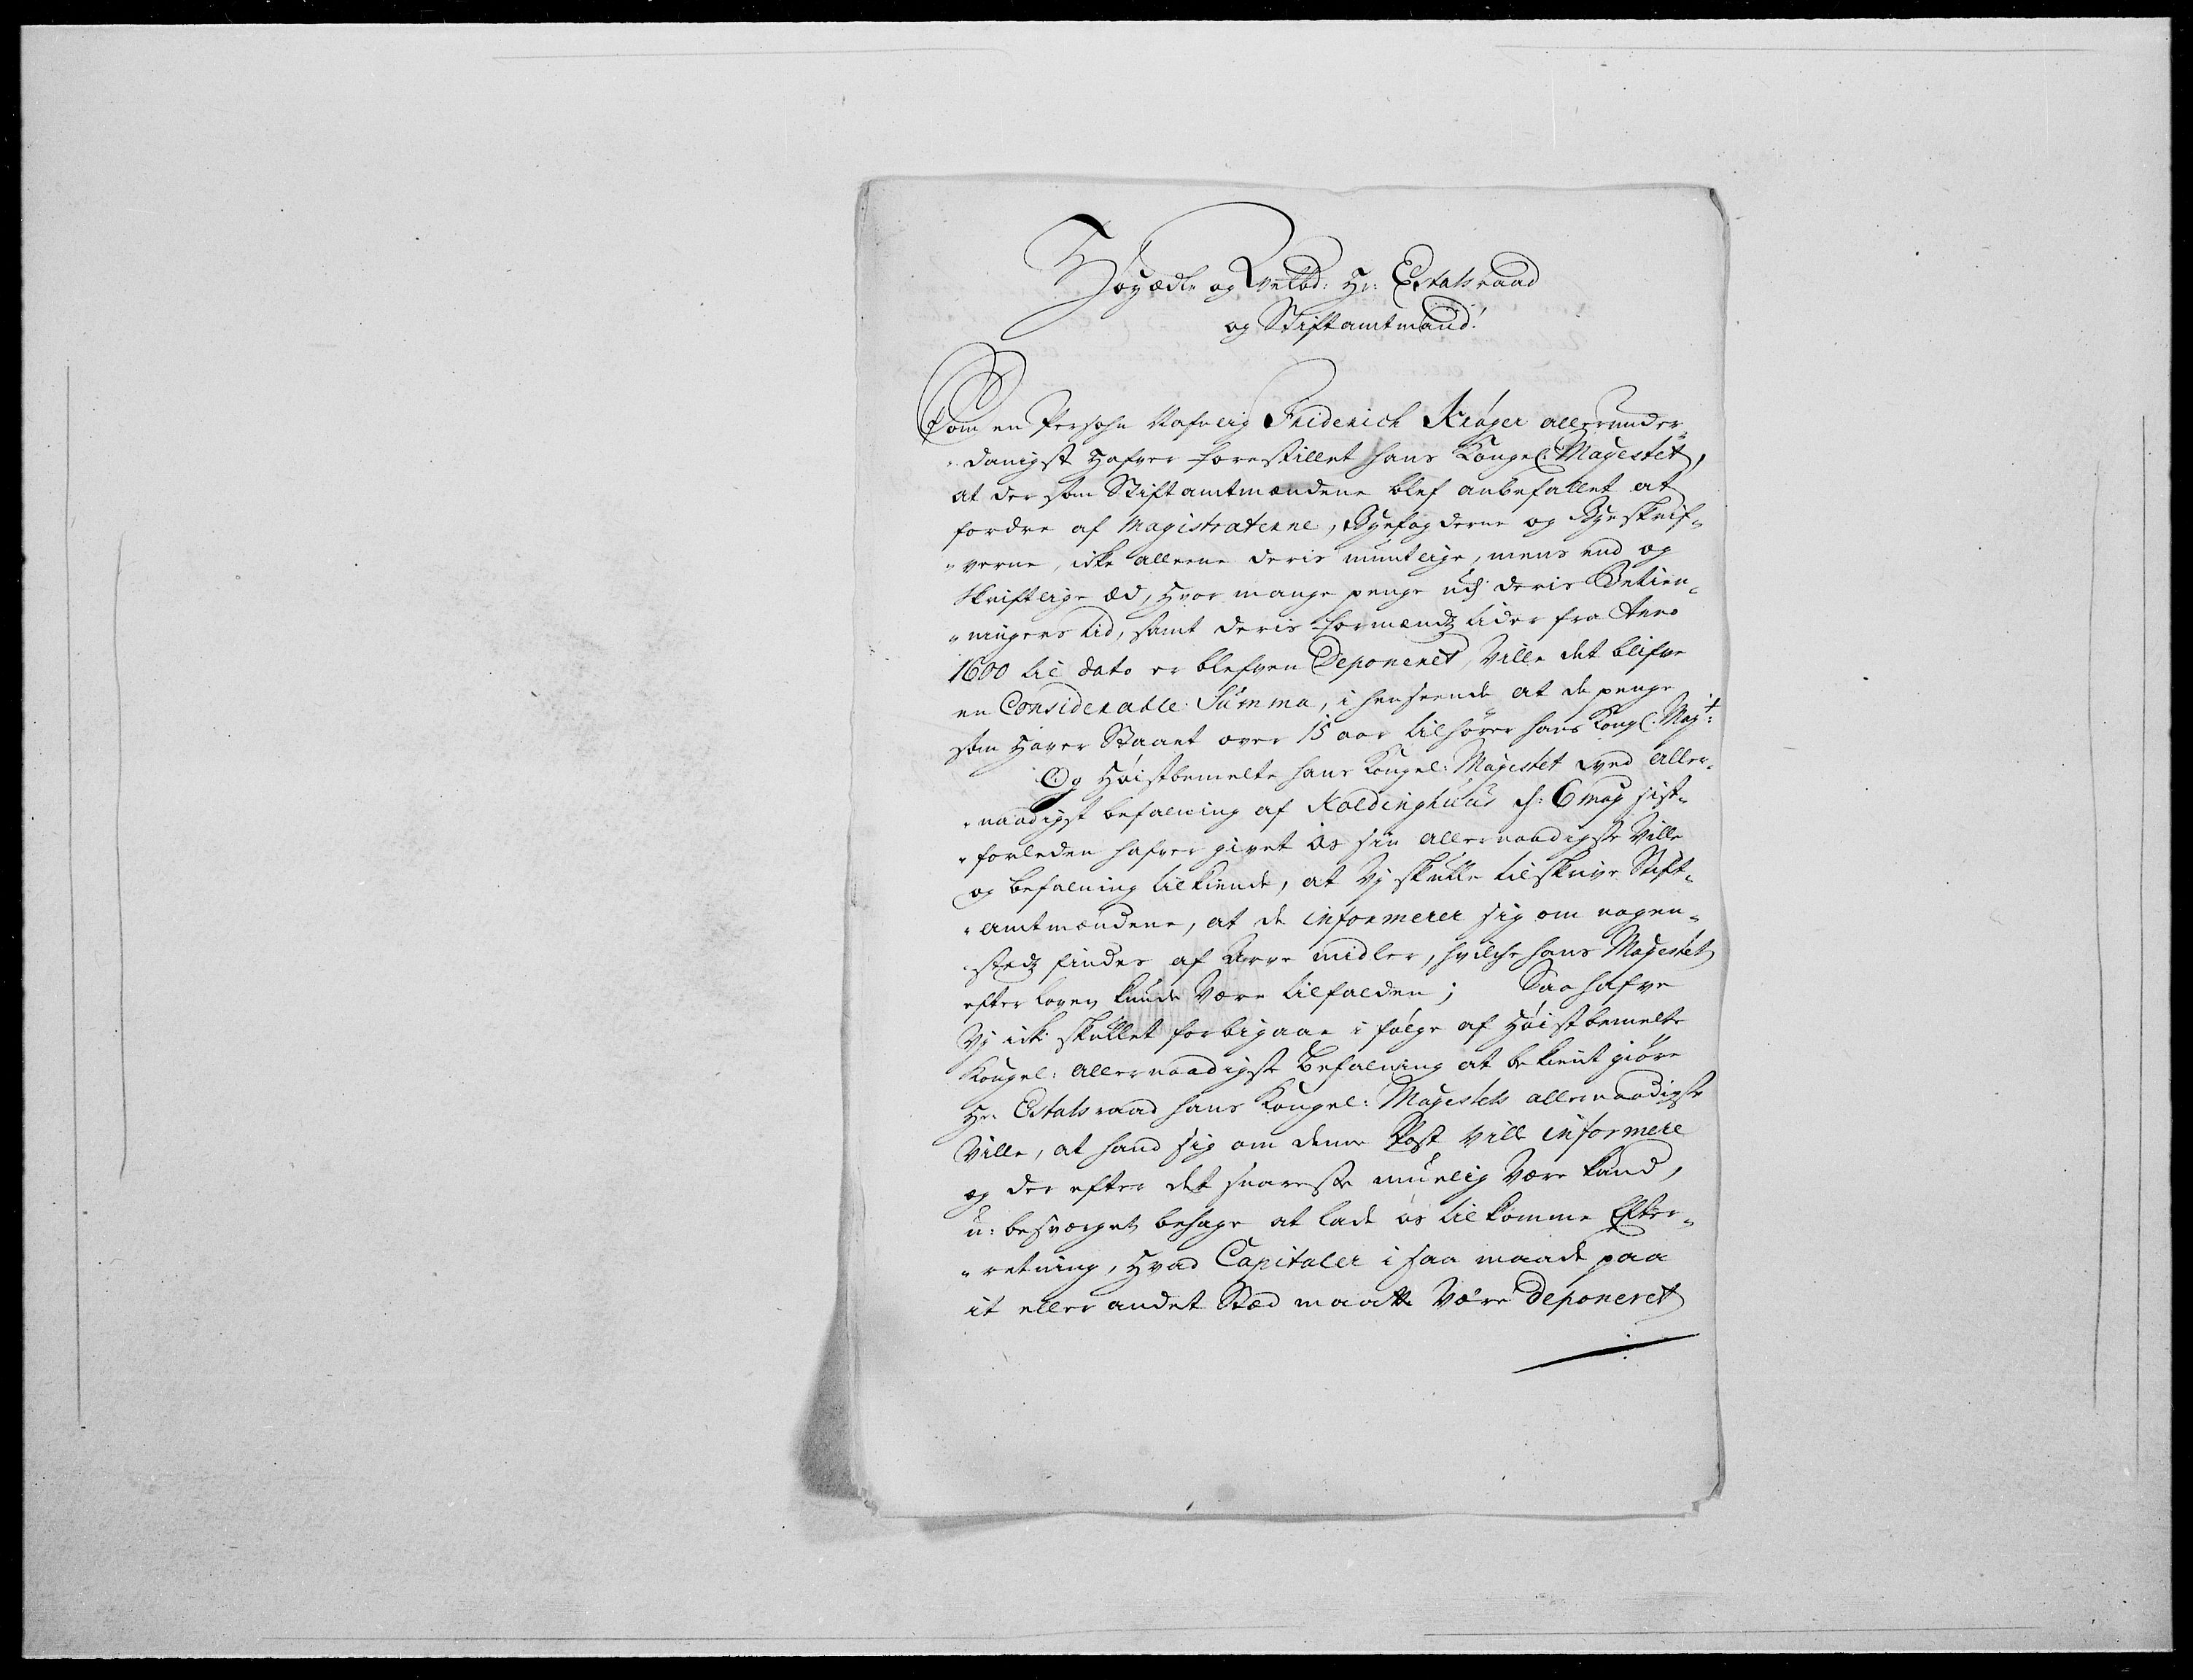 Høyædle og Velbd: Hr: Estatsraad
og Stiftamtmand!
Som en Persohn Nafnlig Friderich Krøyer allerunder„
„danigst Hafver forestillet hans Kongel: Mayestet,
at dersom Stiftamtmændene blef anbefallet at
fordre af Magistraterne, Byefogderne og Byeskrif„
„verne, icke alleene deris mundtlige, mens end og
skriftlige æd, Hvor mange penge udj deris Betien„
„ningers tid, samt deris Formændz tider fra Anno
1600 til dato er blefven Deponeret, Ville det blifve
en Considerable Summa, i henseende at de penge
som Haver Staaet over 15 aar tilhører hans Kongl: Mayt:
Og Høistbemelte hans Kongel: Mayestet ved aller„
„naadigst befalning af Koldinghuus d: 6 may sist„
„forleden hafver givet os sin allernaadigste Ville
og befalning tilkiende, at Vj skulle tilskrive Stift„
„amtmændene, at de informerer sig om nogen„
stedz findes af Arve midler, hvilche hans Mayestet
efter loven kunde Være tilfalden; Saa hafve
Vj ick skullet forbigaae i følge af Høistbemelte
Kongel: allernaadigste Befalning at bekient giøre
Hr: Estatsraad hans Kongel: Mayestets allernaadigste
Ville, at hand sig om denne Post Ville informere
og der efter det snareste muelig Være kand,
u: besværget behage at lade os tilkomme Efter„
„retning, Hvad Capitaler i saa maade paa
it eller andet Stæd maatte Være Deponeret